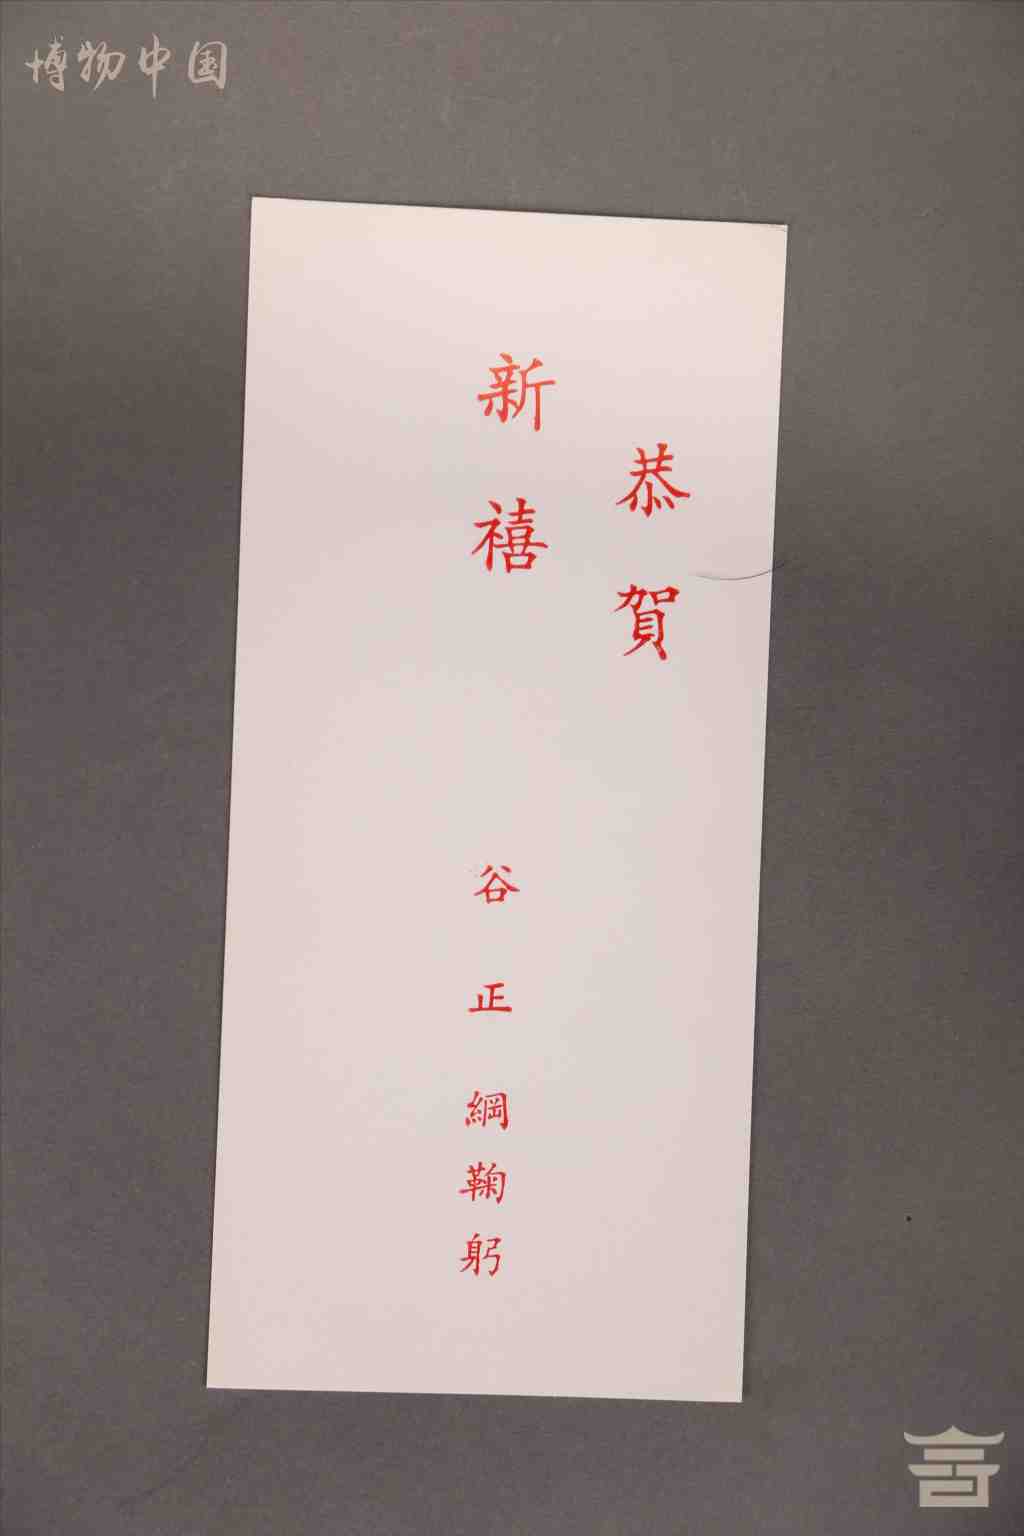 博物中国
恭賀
新禧
谷正綱鞠躬